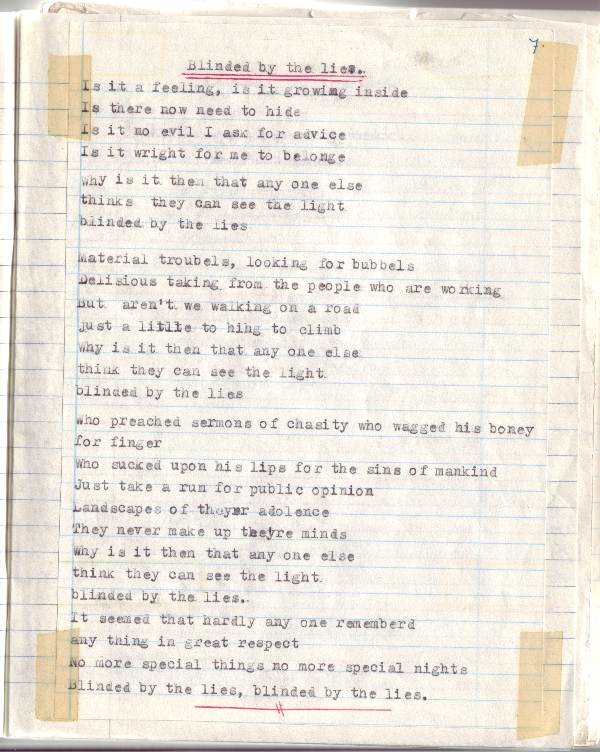 7.
Blinded by the lies.
Is it a feeling, is it growing inside
Is there now need to hide
Is it no evil I ask for advice
Is it wright for me to belonge
Why is it then that any one else
thinks they can see the light
blinded by the lies
Material troubels, looking for bubbels
Delisious taking from the people who are working
But aren't we walking on a road
just a litlle to hihg to climb
Why is it then that any one else
think they can see the light
blinded by the lies
Who preached sermons of chasity who wagged his boney
for finger
Who sucked upon his lips for the sins of mankind
Just take a run for public opinion
Landscapes of adolence
They never make up minds
Why is it then that any one else
think they can see the light
blinded by the lies.
It seemed that hardly any one rememberd
any thing in great respect
No more special things no more special nights
Blinded by the lies, blinded by the lies.